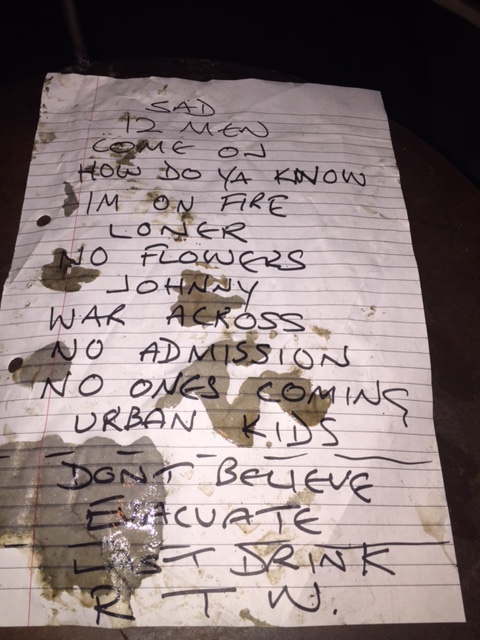 SAD
12 MEN
COME ON
HOW DO YA KNOW
IM ON FIRE
LONER
NO FLOWERS
JOHNNY
WAR ACROSS
NO ADMISSION
NO ONES COMING
URBAN KIDS
DONT BELIEVE
EVACUATE
LAST DRINK
R T W.